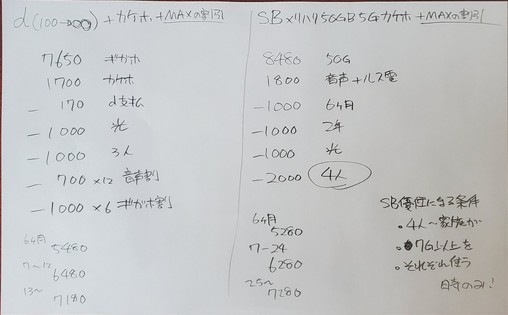 d(100- ) + カケホ + MAXの割引
7650 ギガホ
1700 カケホ
- 170 d支払
- 1000 光
- 1000 3人
- 700 ×12 音声割
- 1000 ×6 ギガホ割
6ヶ月 5480
7-12 6480
13~ 7180
SB メリハリ 50GB 5G カケホ + MAXの割引
8480 50G
1800 音声+ルス電
-1000 6ヶ月
-1000 2年
-1000 光
-2000 4人
6ヶ月 5280
7-24 6280
25~ 7280
SB優位になる条件
・4人~家族が
・7G以上を
・それぞれ使う
時のみ!